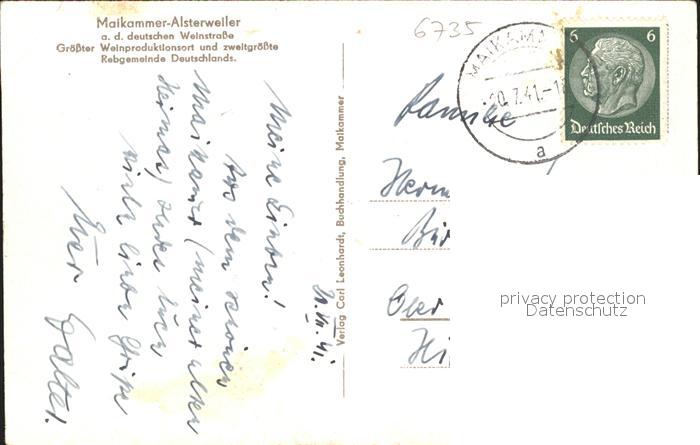 Maikammer-Alsterweiler
a. d. deutschen Weinstraße
Größter Weinproduktionsort und zweitgrößte
Rebgemeinde Deutschlands.
6735
MAIKAMM
20.7.41.-1
a
6 6
Deutsches Reich
Meine Lieben!
Aus dem schönen
Maikammer (meiner alten
Heimat) sendet Euch
viele liebe Grüße
Euer Walter.
20.VII.41.
Verlag Carl Leonhardt, Buchhandlung, Maikammer
Familie
Herm
Bür
Ober
Hi
privacy protection
Datenschutz